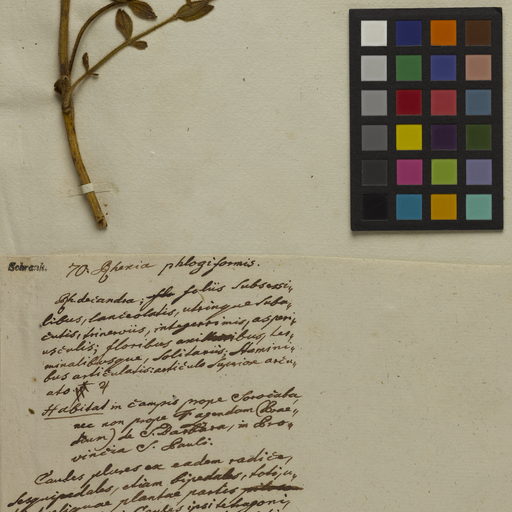 Schrank.
70. Rhexia phlogiformis.
Rh. decandra; foliis subsessi,
libus, lanceolatis, utrinque suba,
cutis, trinerviis, integerrimis, asperi,
usculis; floribus axillaribus, ter,
minalibusque, solitariis; stamini,
bus articulatis: articulo superiore arcu,
ato. ♃
Habitat in campis prope Sorocaba
nec non prope Fazendam (Prae,
dium) de S. Barbara, in Pro,
vincia S. Pauli.
Caules plures ex eadem radice,
sesquipedales, etiam bipedales, toti, u,
reliquae plantae partes
Caules ipsi tetragoni,